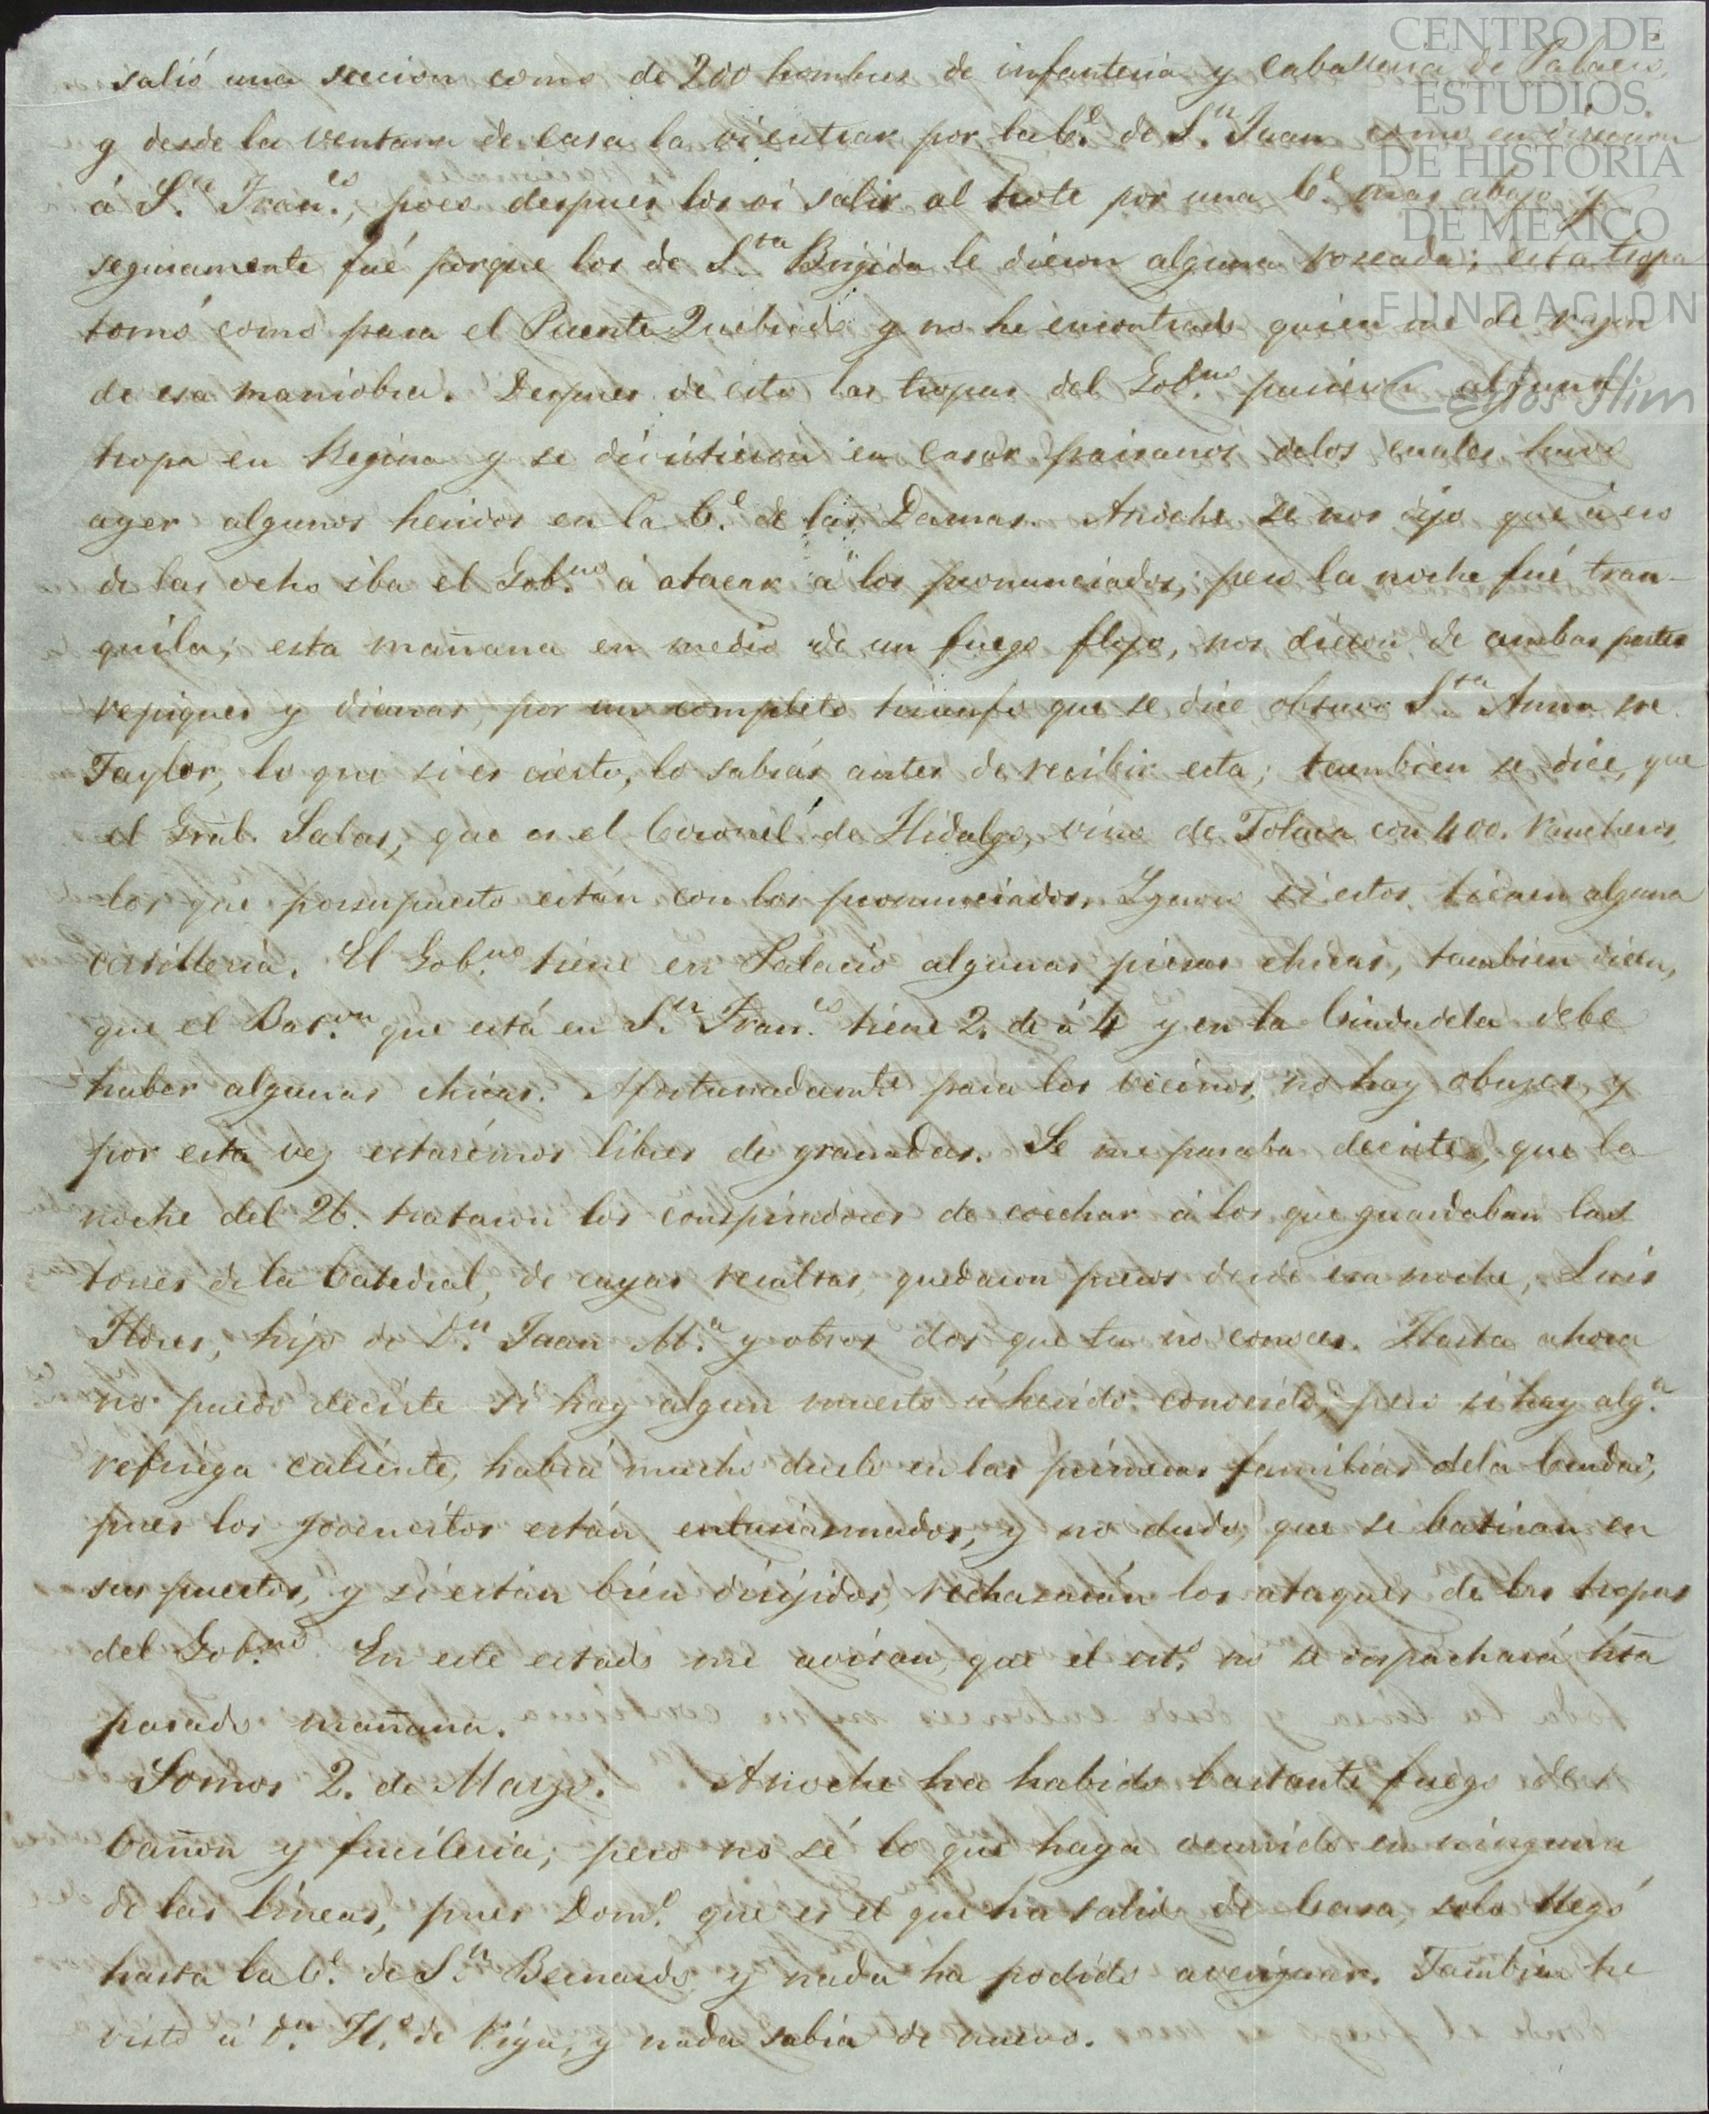 CENTRO DE
ESTUDIOS
DE HISTORIA
DE MÉXICO
FUNDACIÓN
Carlos Slim
salió una seccion como de 200 hombres de infanteria y caballeria de Palacio,
y desde la ventana de casa la vi entrar por la C.e de S.n Juan como en direccion
á S.n Fran.co, pues despues los vi salir al trote por una C.e mas abajo y
seguramente fué porque los de S.ta Brigida le dieron alguna roseada; esta tropa
tomó como para el Puente Quebrado y no he encontrado quien me de razon
de esa maniobra. Despues de esto las tropas del Gob.no pusieron alguna
tropa en Regina y se divirtieron en casar paisanos delos cuales huvo
ayer algunos heridos en la C.e de las Damas. Anoche se nos dijo que acia
de las ocho iba el Gob.no á atacar á los pronunciados; pero la noche fué tran-
quila; esta mañana en medio de un fuego flojo, nos dieron de ambas partes
repiques y dianas, por un completo triunfo que se dice obtuvo S.ta Anna sre
Taylor, lo que si es cierto, lo sabrás antes de recibir esta; tambien se dice, que
el Gral. Salas, que es el Coronel de Hidalgo, vino de Toluca con 400. rancheros,
los que porsupuesto están con los pronunciados. Ygnoro si estos tienen alguna
artilleria. El Gob.no tiene en Palacio algunas piezas chicas, tambien dicen,
que el Bat.on que está en S.n Fran.co tiene 2. de á 4 y en la Ciudadela debe
haber algunas chicas. Afortunadam.te para los vecinos, no hay obuses, y
por esta vez estarémos libres de granadas. Se me pasaba decirte, que la
noche del 26. trataron los conspiradores de coechar á los que guardaban las
torres de la Catedral, de cuyas resultas, quedaron presos desde esa noche, Luis
Flores, hijo de D.n Juan M.a y otros dos que tu no conoces. Hasta ahora
no puedo decirte si hay algun muerto ú herido conocido; pero si hay alg.a
refriega caliente, habrá mucho duelo en las primeras familias dela Ciudad,
pues los jovencitos están entusiasmados, y no dudo, que se batiran en
sus puestos, y si están bien dirijidos, rechazarán los ataques de las tropas
del Gob.no En este estado me avisan, que el est.o no se despachará hta
pasado mañana.
Somos 2. de Marzo. Anoche ha habido bastante fuego de
Cañon y fucileria; pero no sé lo que haya ocurrido en ninguna
de las lineas, pues Dom.o que es el que ha salido de Casa, solo llegó
hasta la C.e de S.n Bernardo y nada ha podido averiguar. Tambien he
visto á D.n H.e de Viga, y nada sabia de nuevo.